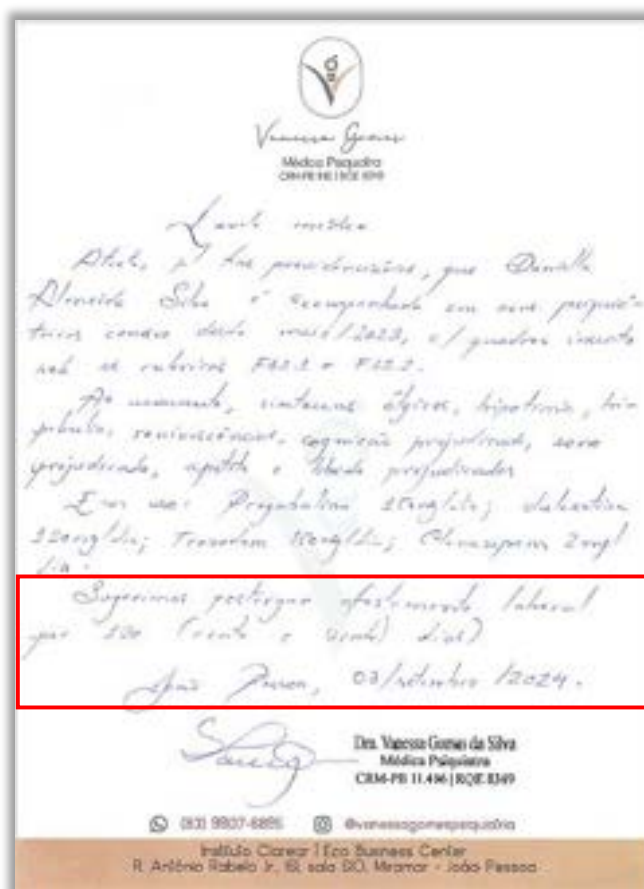 Vanessa Gomes
Médica Psiquiatra
Laudo médico
Atesto, p/ fins previdenciários, que Danielle
Almeida Silva é acompanhada em nosso
desde maio/2023, c/ quadros
sob as rubricas
Ao momento, sintomas álgicos, hipotimia,
revivescências, cognição prejudicada, sono
prejudicado, apetite e libido prejudicados
Em uso: Pregabalina 150mg/dia; duloxetina
120mg/dia; Trazodona 150mg/dia; Clonazepam 2mg/
dia.
Sugerimos postergar afastamento laboral
por 120 (cento e vinte) dias)
João Pessoa, 03/setembro/2024.
Dra. Vanessa Gomes da Silva
Médica Psiquiatra
CRM-PB 11.496 | RQE 8349
(83) 9907-6895 @vanessagomespsiquiatria
Instituto Clarear | Eco Business Center
R. Antônio Rabelo Jr., sala Miramar - João Pessoa